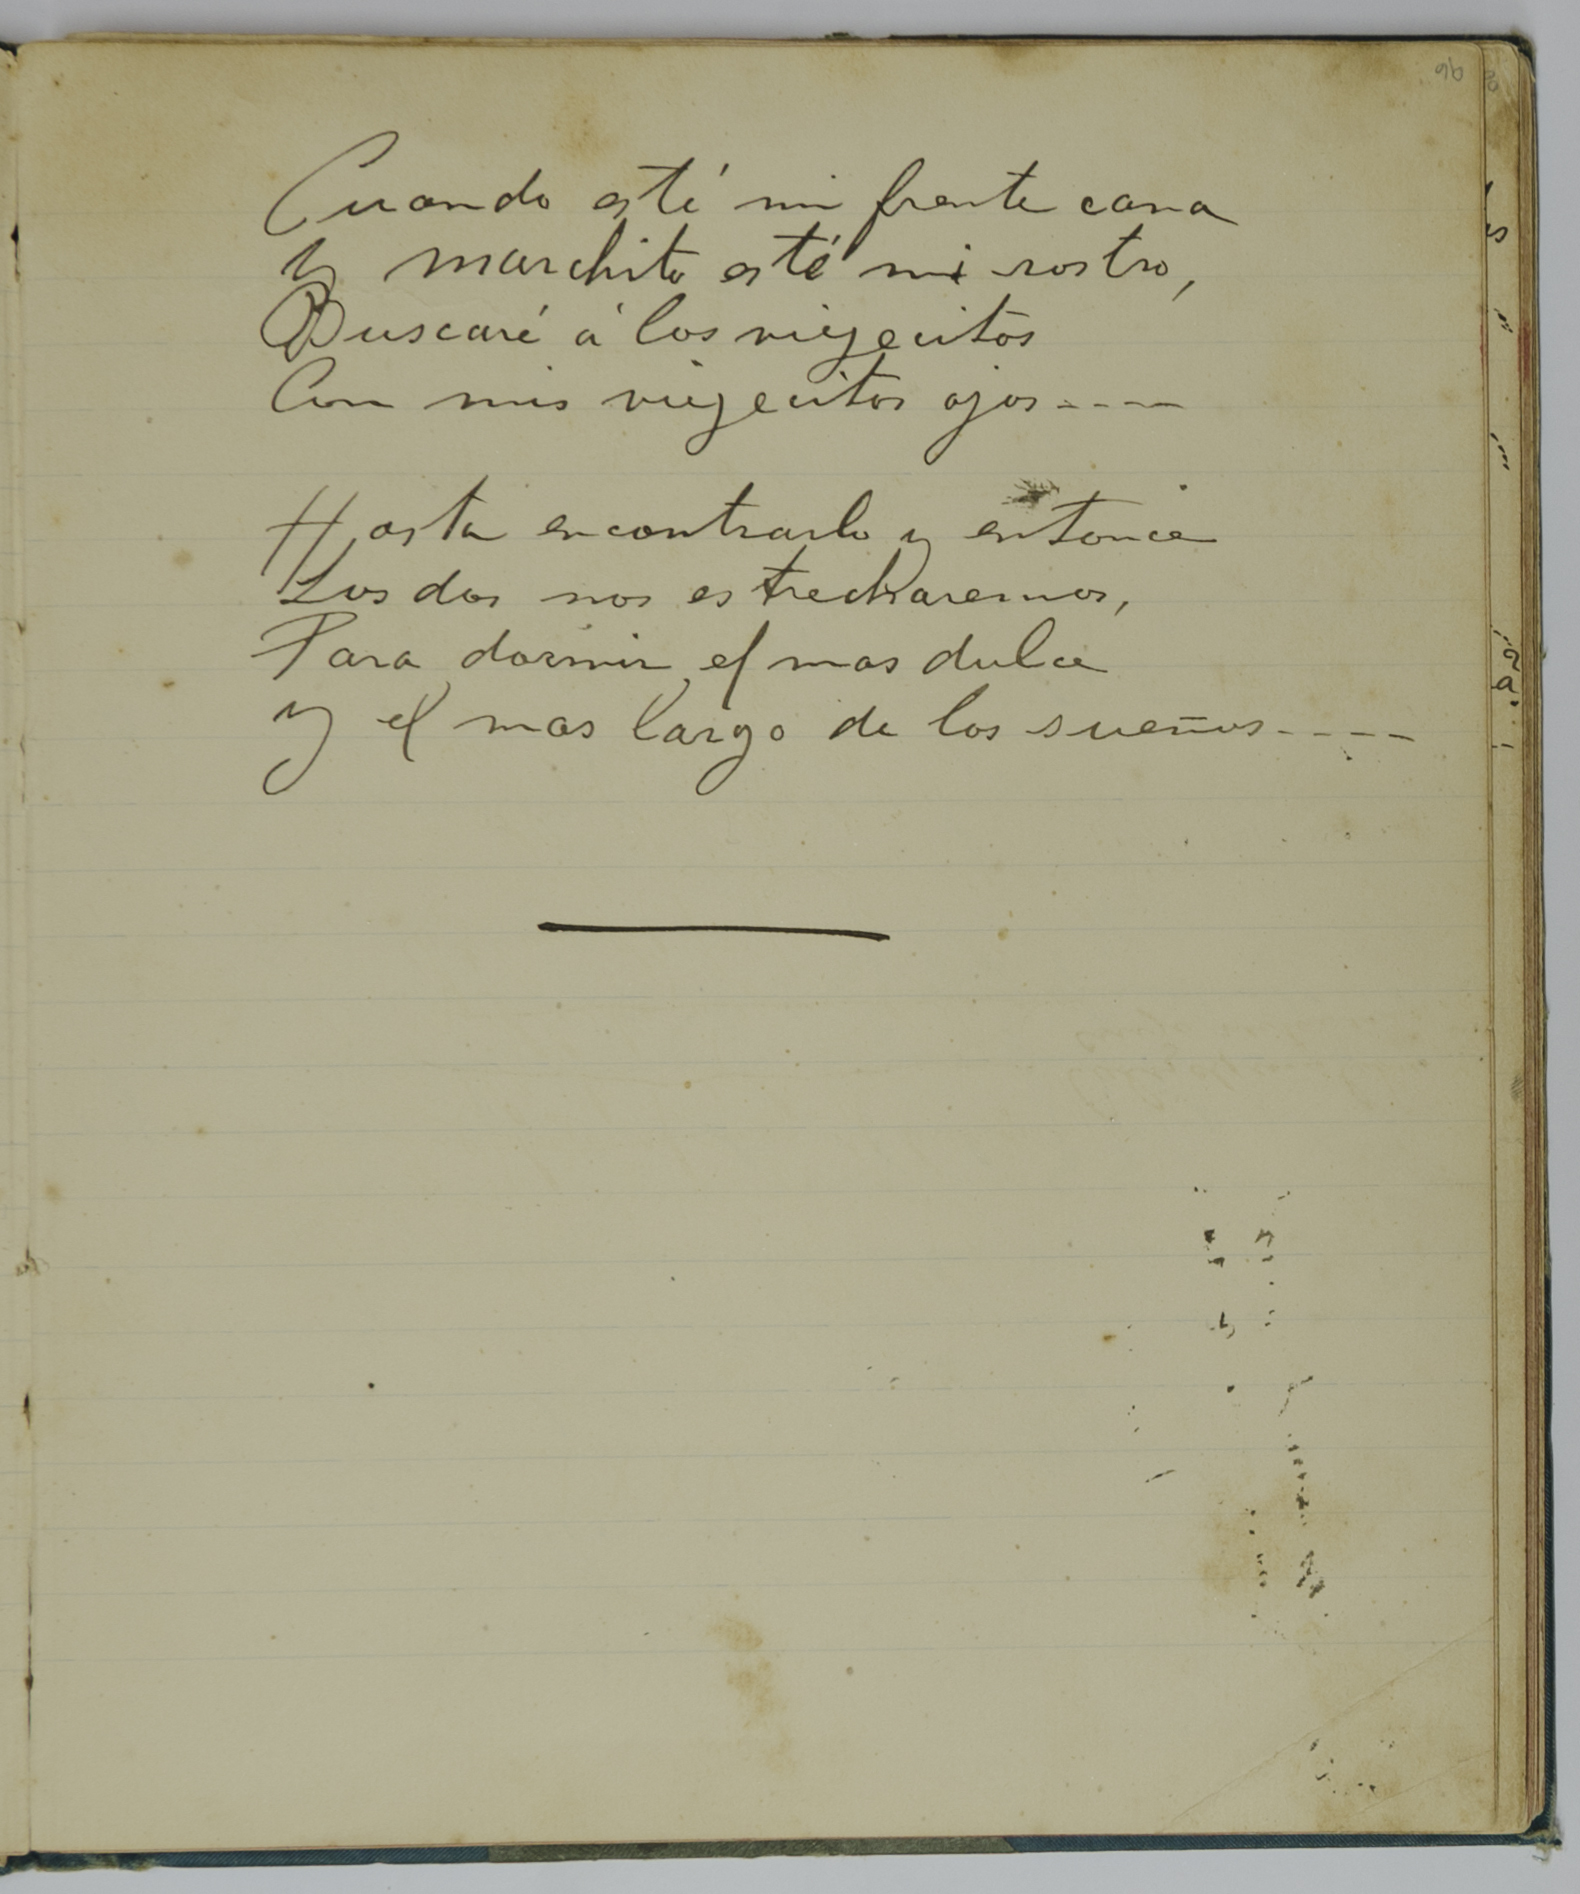 96
Cuando esté mi frente cana
y marchito esté mi rostro,
Buscaré á los viegecitos
Con mis viegecitos ojos----
Hasta encontrarlo y entonce
Los dos nos estrecharemos,
Para dormir el mas dulce
y el mas largo de los sueños-----